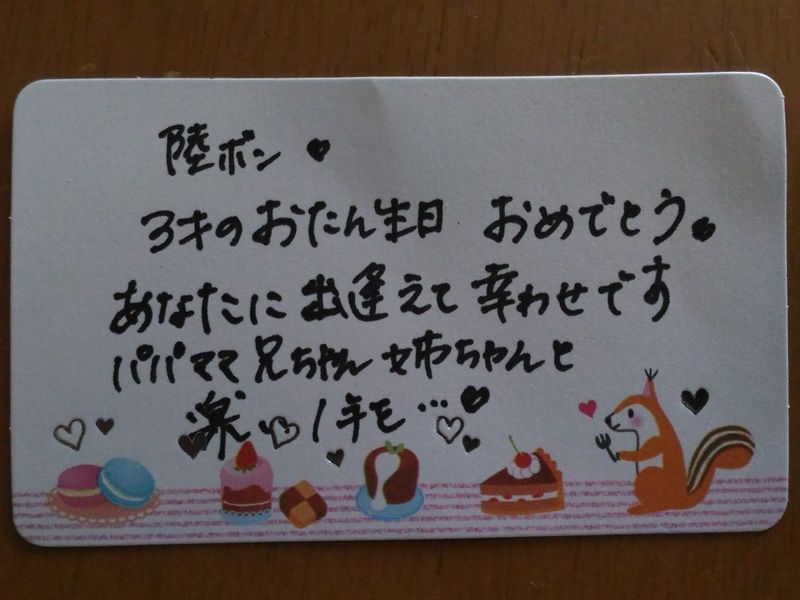 陸ボン♥
3才のおたん生日 おめでとう。
あなたに出逢えて幸わせです
パパママ兄ちゃん姉ちゃんと
楽しい1年を…♥